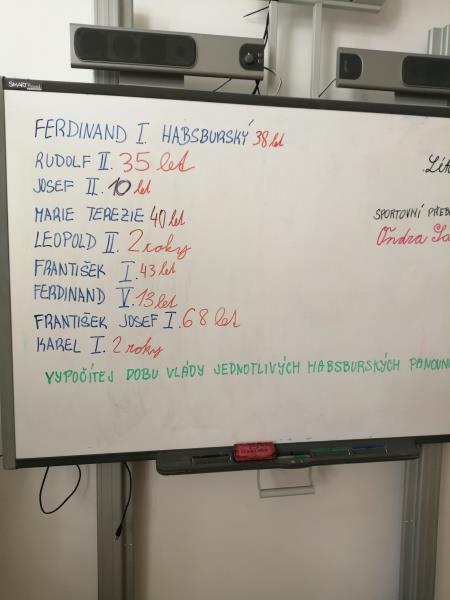 SMART
FERDINAND I. HABSBURSKÝ 38 let
RUDOLF II. 35 let
JOSEF II. 10 let
MARIE TEREZIE 40 let
LEOPOLD II. 2 roky
FRANTIŠEK I. 43 let
FERDINAND V. 13 let
FRANTIŠEK JOSEF I. 68 let
KAREL I. 2 roky
VYPOČÍTEJ DOBU VLÁDY JEDNOTLIVÝCH HABSBURSKÝCH PANOVN
SPORTOVNÍ PŘEB
Ondra